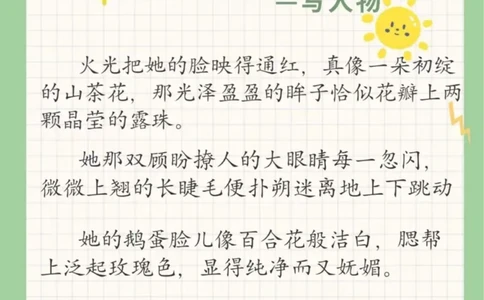 —写人物
火光把她的脸映得通红，真像一朵初绽
的山茶花，那光泽盈盈的眸子恰似花瓣上两
颗晶莹的露珠。
她那双顾盼撩人的大眼睛每一忽闪，
微微上翘的长睫毛便扑朔迷离地上下跳动
她的鹅蛋脸儿像百合花般洁白，腮帮
上泛起玫瑰色，显得纯净而又妩媚。